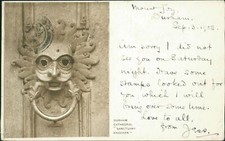 Mount Joy
Durham.
Sep. 2. 1902.
Am sorry I did not
see you on Saturday
night. Have some
stamps looked out for
you which I will
bring over some time.
Love to all,
from Jess.
DURHAM
CATHEDRAL
SANCTUARY
KNOCKER